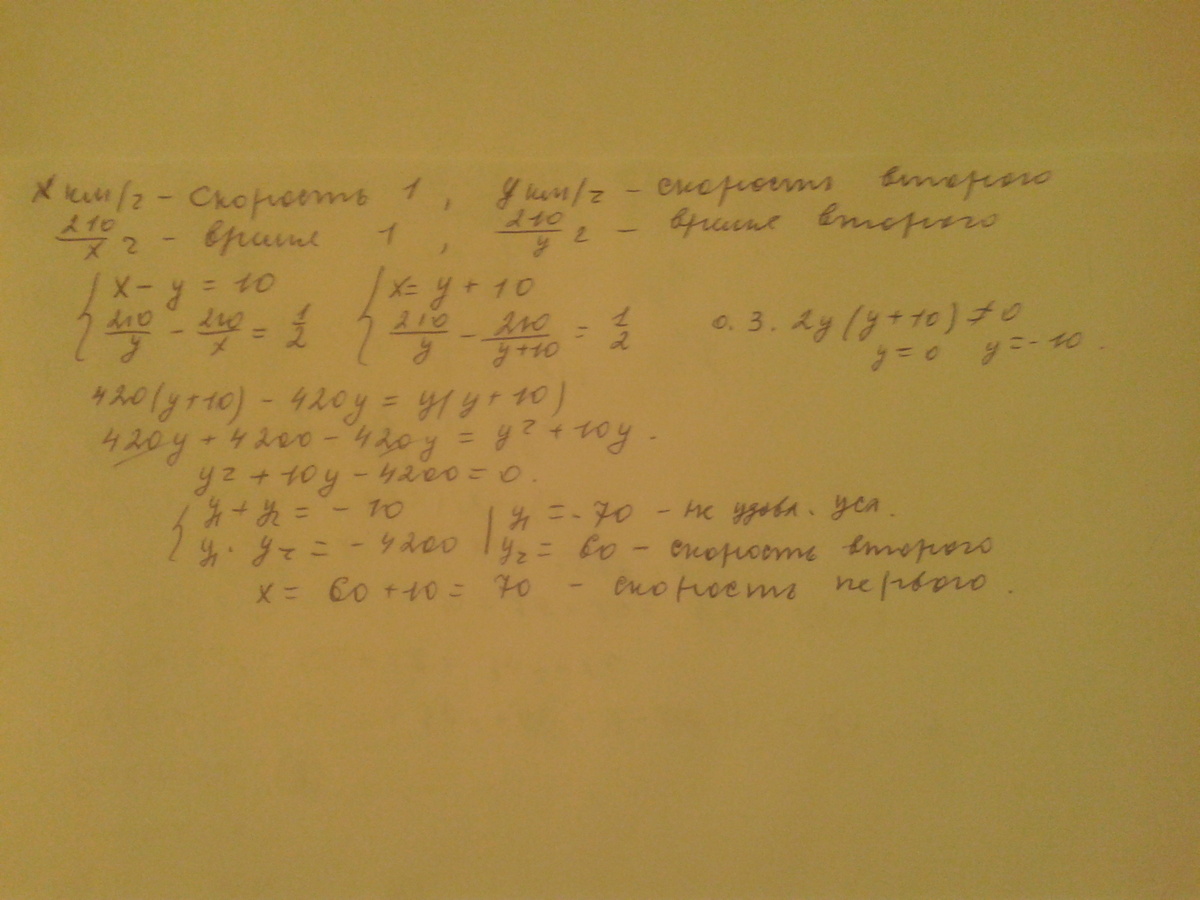 x км/ч – скорость 1 , y км/ч – скорость второго
210/x ч – время 1 , 210/y ч – время второго
{ x – y = 10 { x = y + 10
{ 210/y – 210/x = 1/2 { 210/y – 210/(y+10) = 1/2 о. з. 2y(y+10) ≠ 0
y = 0 y = -10 .
420(y+10) – 420y = y(y+10)
420y + 4200 – 420y = y² + 10y .
y² + 10y – 4200 = 0 .
{ y₁ + y₂ = – 10 | y₁ = - 70 – не удовл. усл.
{ y₁ · y₂ = – 4200 | y₂ = 60 – скорость второго
x = 60 + 10 = 70 – скорость первого .